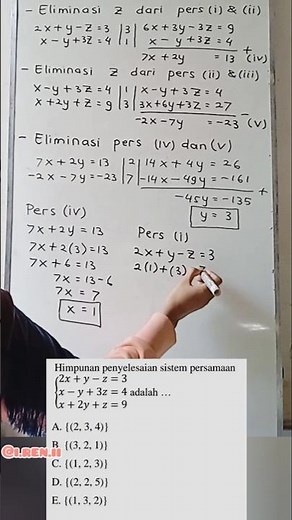 - Eliminasi z dari pers (i) & (ii)
2x + y - z = 3 |3| 6x + 3y - 3z = 9
x - y + 3z = 4 |1| x - y + 3z = 4 +
7x + 2y = 13 (iv)
- Eliminasi z dari pers (ii) & (iii)
x - y + 3z = 4 |1| x - y + 3z = 4
x + 2y + z = 9 |3| 3x + 6y + 3z = 27 -
-2x - 7y = -23 (v)
- Eliminasi pers (iv) dan (v)
7x + 2y = 13 |2| 14x + 4y = 26
-2x - 7y = -23 |7| -14x - 49y = -161 +
-45y = -135
y = 3
Pers (iv)
7x + 2y = 13
7x + 2(3) = 13
7x + 6 = 13
7x = 13 - 6
7x = 7
x = 1
Pers (i)
2x + y - z = 3
2(1) + (3)
Himpunan penyelesaian sistem persamaan
{2x + y − z = 3
{x − y + 3z = 4 adalah …
{x + 2y + z = 9
A. {(2, 3, 4)}
B. {(3, 2, 1)}
C. {(1, 2, 3)}
D. {(2, 2, 5)}
E. {(1, 3, 2)}
@I.REN.II